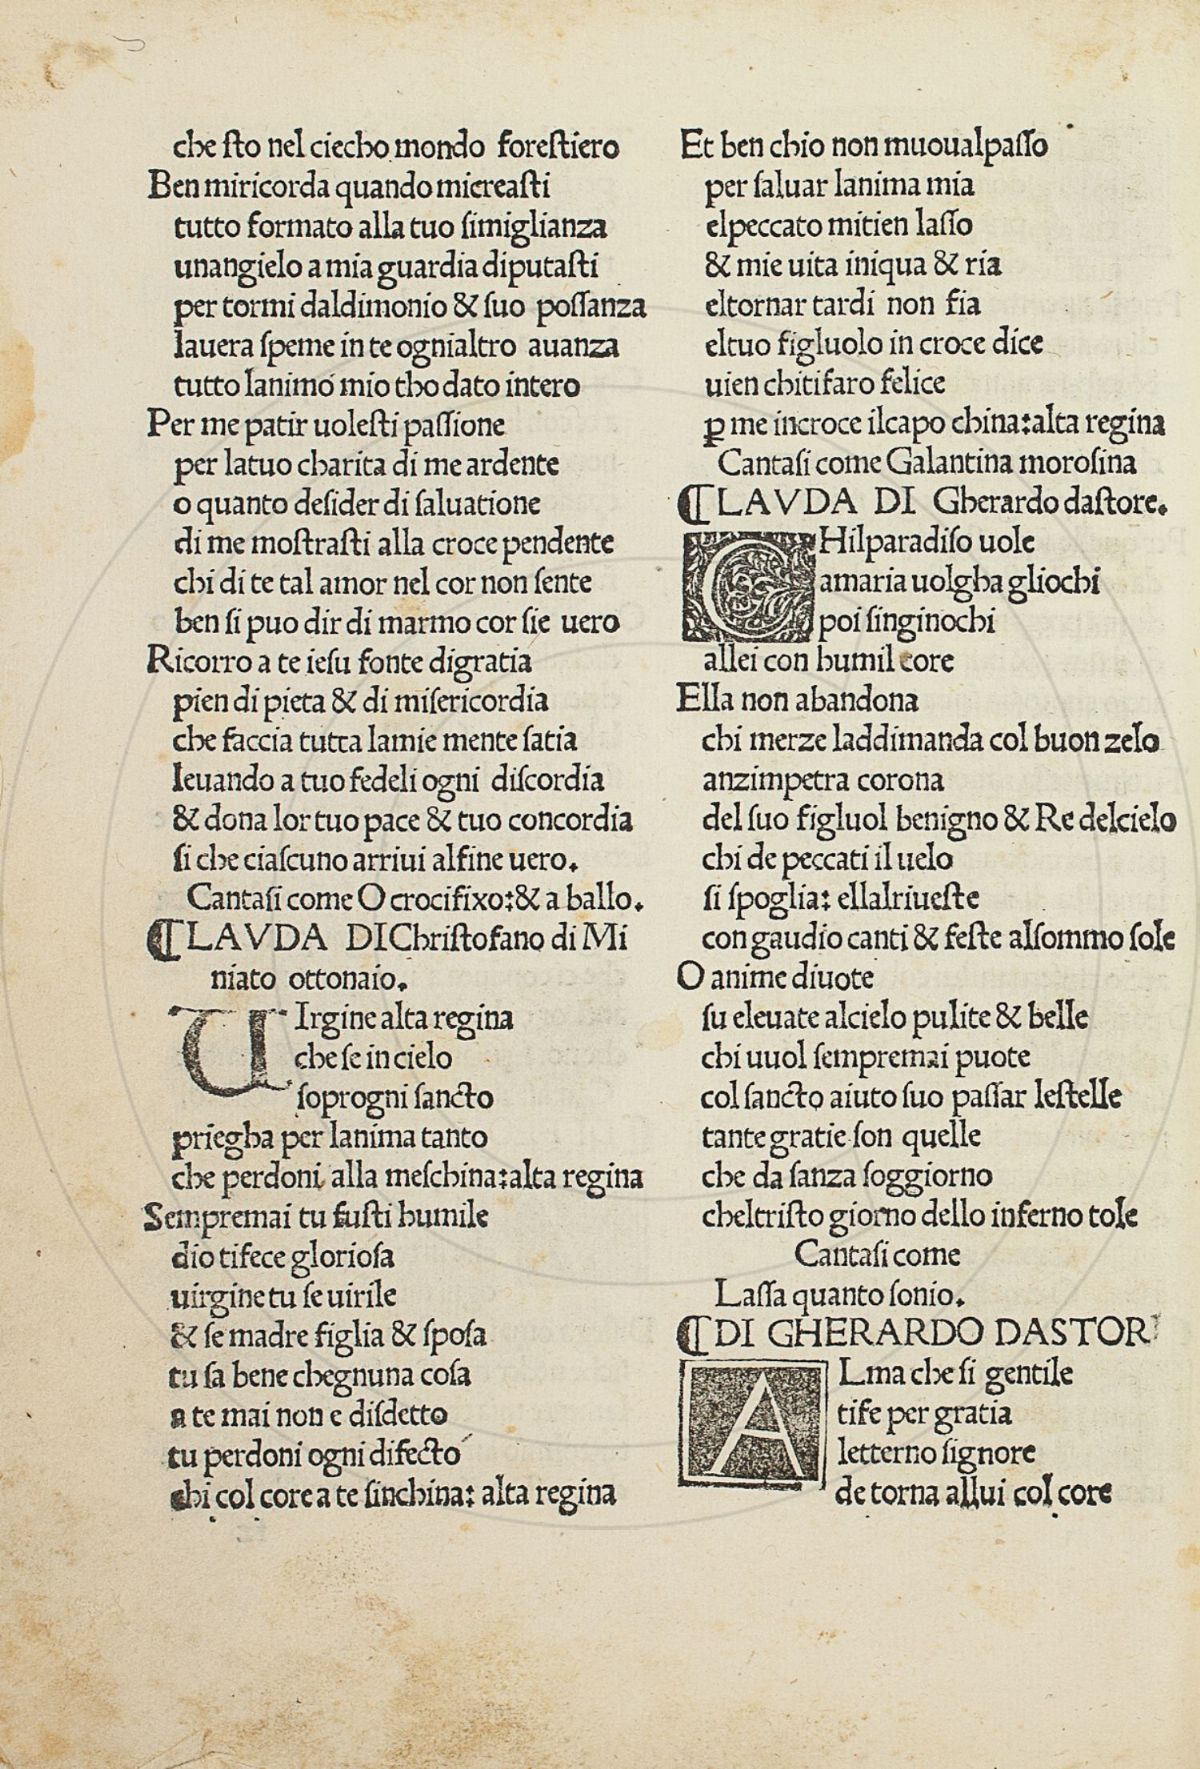 che ſto nel ciecho mondo foreſtiero
Ben miricorda quando micreaſti
tutto formato alla tuo ſimiglianza
unangielo a mia guardia diputaſti
per tormi daldimonio & ſuo poſſanza
lauera ſpeme in te ognialtro auanza
tutto lanimo mio tho dato intero
Per me patir uoleſti paſſione
per latuo charita di me ardente
o quanto deſider di ſaluatione
di me moſtraſti alla croce pendente
chi di te tal amor nel cor non ſente
ben ſi puo dir di marmo cor ſie uero
Ricorro a te ieſu fonte digratia
pien di pieta & di miſericordia
che faccia tutta lamie mente ſatia
leuando a tuo fedeli ogni diſcordia
& dona lor tuo pace & tuo concordia
ſi che ciaſcuno arriui alfine uero.
Cantaſi come O crocifixo:& a ballo.
¶LAVDA DI Chriſtofano di Mi
niato ottonaio.
UIrgine alta regina
che ſe in cielo
ſoprogni ſancto
priegha per lanima tanto
che perdoni alla meſchina:alta regina
Sempremai tu fuſti humile
dio tifece glorioſa
uirgine tu ſe uirile
& ſe madre figlia & ſpoſa
tu ſa bene chegnuna coſa
a te mai non e diſdetto
tu perdoni ogni difecto
chi col core a te ſinchina: alta regina
Et ben chio non muoualpaſſo
per ſaluar lanima mia
elpeccato mitien laſſo
& mie uita iniqua & ria
eltornar tardi non fia
eltuo figluolo in croce dice
uien chitifaro felice
ꝑ me incroce ilcapo china:alta regina
Cantaſi come Galantina moroſina
¶LAVDA DI Gherardo daſtore.
CHilparadiſo uole
amaria uolgha gliochi
poi ſinginochi
allei con humil core
Ella non abandona
chi merze laddimanda col buon zelo
anzimpetra corona
del ſuo figluol benigno & Re delcielo
chi de peccati il uelo
ſi ſpoglia: ellalriueſte
con gaudio canti & feſte alſommo ſole
O anime diuote
ſu eleuate alcielo pulite & belle
chi uuol ſempremai puote
col ſancto aiuto ſuo paſſar leſtelle
tante gratie ſon quelle
che da ſanza ſoggiorno
cheltriſto giorno dello inferno tole
Cantaſi come
Laſſa quanto ſonio.
¶DI GHERARDO DASTOR
ALma che ſi gentile
tife per gratia
letterno ſignore
de torna allui col core